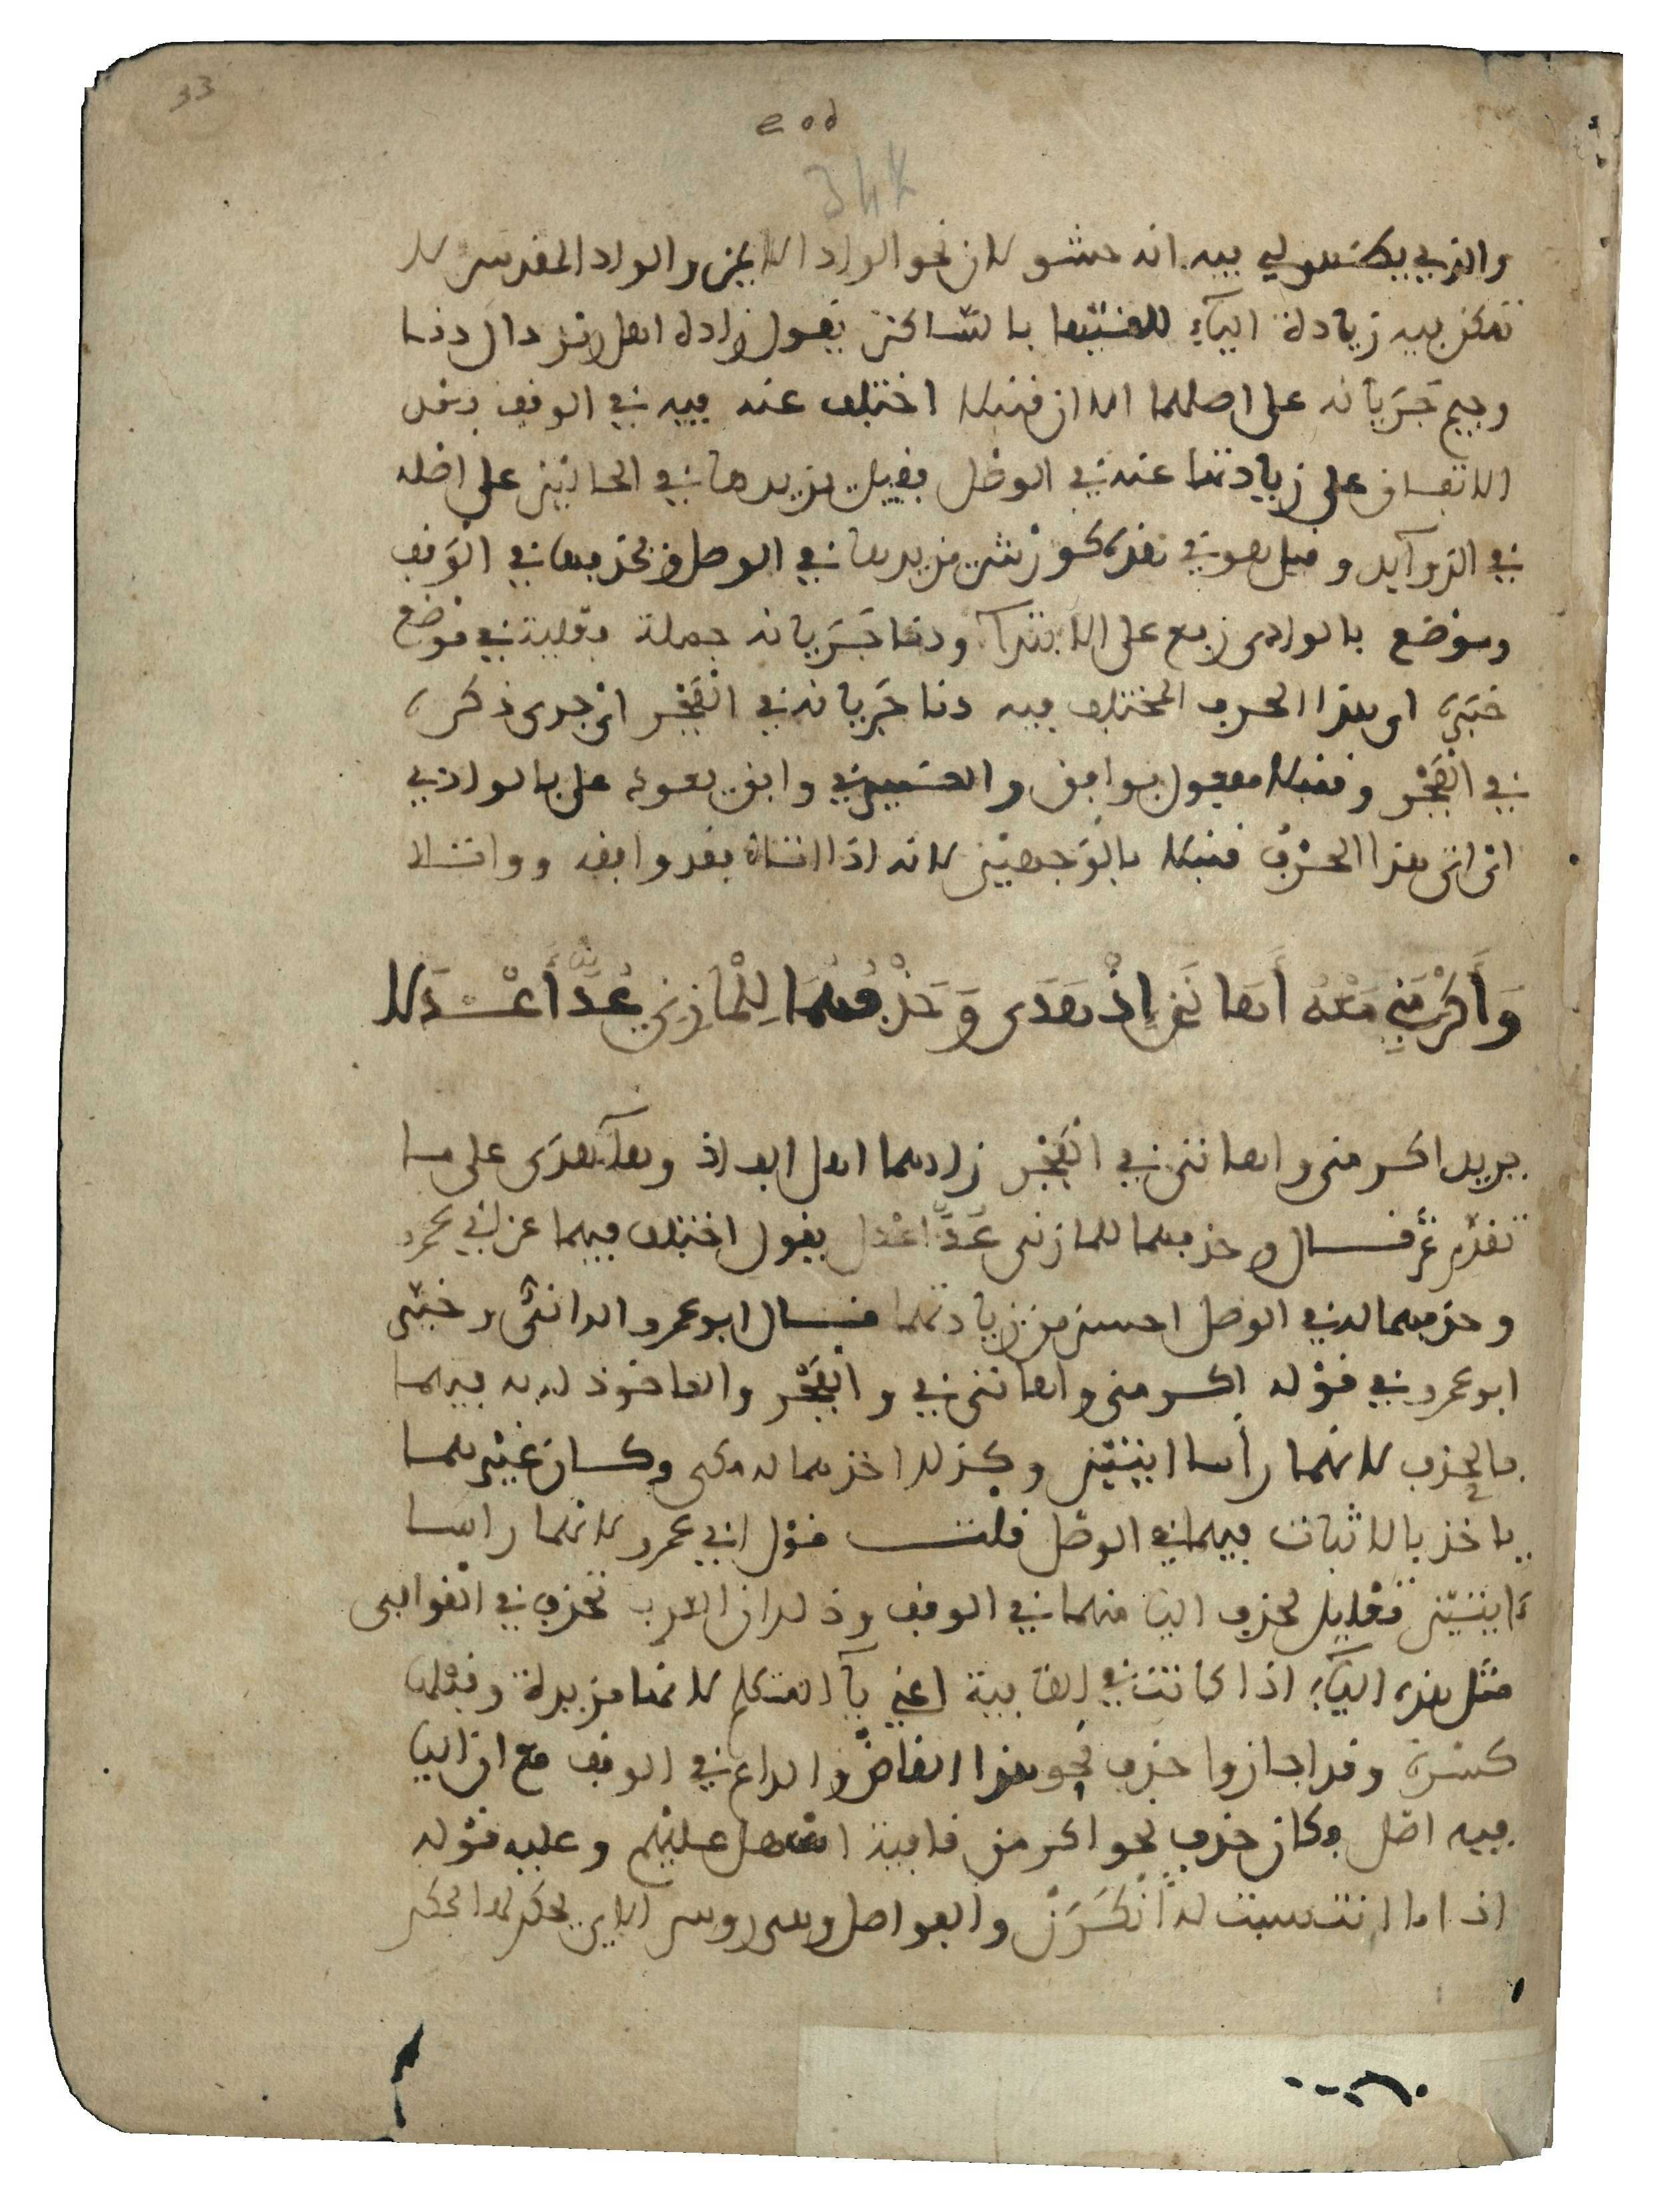 33
والذي يظهر لي فيه انه حشو لان نحو الواد الايمن والواد المقدس لا
تمكن فيه زيادة الياء للقيها بالساكن يقول زاده اهل دال دنا
وجيم جريانه على اصلهما الا ان قنبلا اختلف عنه فيه في الوقف بعد
الاتفاق على زيادتها عنه في الوصل فقيل يزيدها في الحالين على اصله
في الزوآيد وقيل هو في هذه كورش يزيدها في الوصل ويحذفها في الوقف
وموضع بالوادى رفع على الابتدآ ودنا جريانه جملة فعلية في موضع
خبره اى هذا الحرف المختلف فيه دنا جريانه في الفجر اى جرى ذكره
في الفجر وقنبلا مفعول بوافق والضمير في وافق يعود على بالوادي
اى اتى هذا الحرف قنبلا بالوجهين لانه اذا اتاه فقد وافقه وواتاه
وَأَكْرَمَنِي مَعْهُ أَهَانَنِ إِذْ هَدَى وَحَذْفُهُمَا لِلْمَازِنِي عُدَّ أَعْدَلَا
يريد اكرمنى واهاننى في الفجر زادهما اهل الف اذ وهآ هدى على ما
تقدم ثم قال وحذفهما للمازنى عُدَّ اعدل يقول اختلف فيهما عن ابي عمرو
وحذفهما له في الوصل احسن من زيادتهما قال ابو عمرو الدانى وخير
ابو عمرو في قوله اكرمنى واهاننى في والفجر والماخوذ له به فيهما
بالحذف لانهما رأسا ايتين وكذلك اخذهما له مكى وكان غيرهما
ياخذ بالاثبات فيهما في الوصل قلت قول ابي عمرو لانهما راسا
ءايتين تعليل لحذف اليا منهما في الوقف وذلك ان العرب تحذف في القوافى
مثل هذه اليآء اذا كانت في القافية اعني يآ المتكلم لانها مزيدة وقبلها
كسرة وقد اجازوا حذف نحو هذا القاض والداع في الوقف مع ان اليا
فيه اصل وكان حذف نحو اكرمن قافية اسهل عليهم وعليه قوله
اذا ما انتسبت له أنكَرَنْ والفواصل وهى روس الاى يحكم لها بحكم